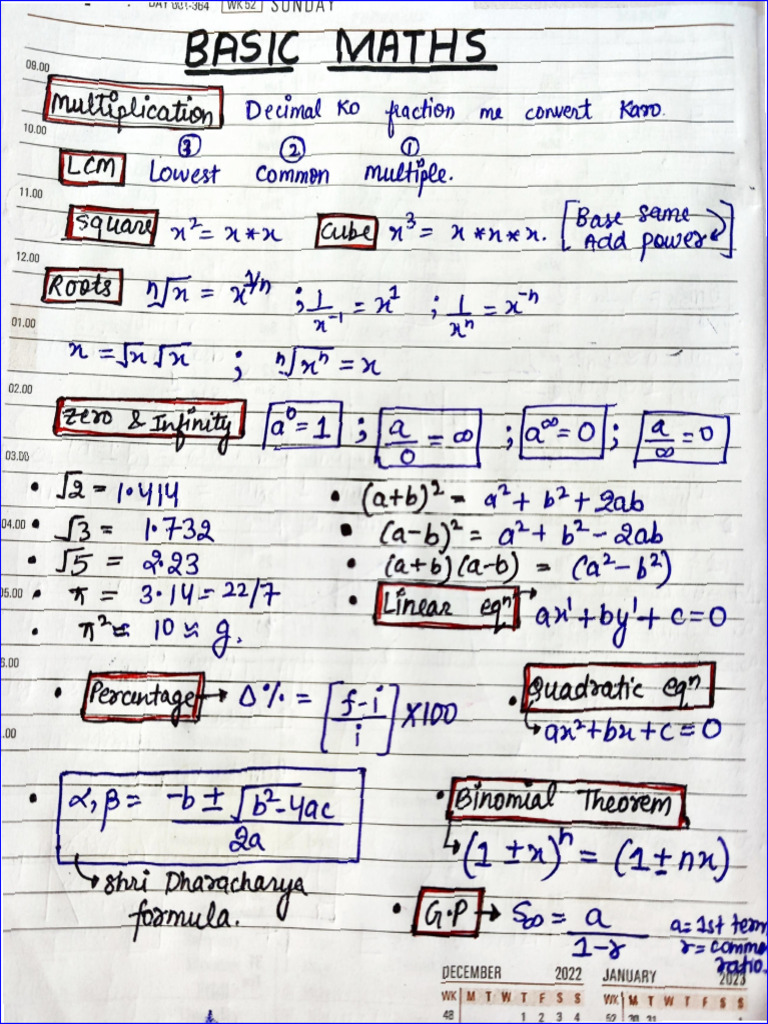 DAY 001-364 WK 52 SUNDAY
BASIC MATHS
09.00
Multiplication Decimal ko fraction me convert Karo.
10.00
③ ② ①
LCM Lowest Common multiple.
11.00
Square x² = x*x Cube x³ = x*x*x. [Base same Add power]
12.00
Roots ⁿ√x = x^1/n ; 1/x⁻¹ = x¹ ; 1/xⁿ = x⁻ⁿ
01.00
x = √x √x ; ⁿ√xⁿ = x
02.00
Zero & Infinity a⁰ = 1 ; a/0 = ∞ ; a^∞ = 0 ; a/∞ = 0
03.00
• √2 = 1.414 • (a+b)² = a² + b² + 2ab
04.00 • √3 = 1.732 • (a-b)² = a² + b² - 2ab
• √5 = 2.23 • (a+b) (a-b) = (a² - b²)
05.00 • π = 3.14 = 22/7 • Linear eqⁿ → ax¹ + by¹ + c = 0
• π² ≈ 10 ≈ g.
6.00
• Percentage → Δ% = [f-i/i] X100 • Quadratic eqⁿ
.00 ↳ ax² + bx + c = 0
• α, β = -b ± √b²-4ac / 2a • Binomial Theorem
↳ (1 ± x)ⁿ = (1 ± nx)
↳ Shri Dharacharya
formula. • G.P → S∞ = a/1-r a = 1st term
r = commo
ratio.
DECEMBER 2022 JANUARY 2023
WK M T W T F S S WK M T W T F S S
48 1 2 3 4 52 30 31